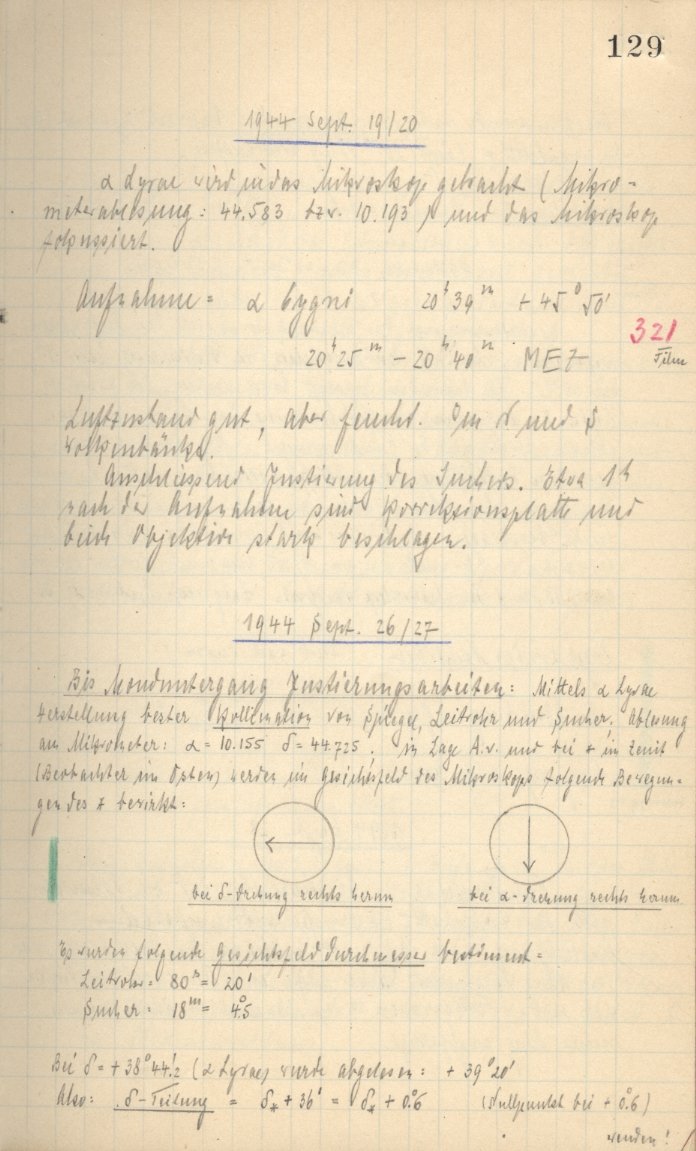 129
1944 Sept. 19/20
α Lyrae wird in das Mikroskop gebracht (Mikro-
meterablesung: 44.583 bzw. 10.193) und das Mikroskop
fokussiert.
Aufnahme: α Cygni 20h 39m + 45° 50'
321
20h 25m – 20h 40m MEZ Film
Luftzustand gut, aber feucht. Im N und S
Wolkenbänke.
Anschliessend Justierung des Suchers. Etwa 1h
nach der Aufnahme sind Korrektionsplatte und
beide Objektive stark beschlagen.
1944 Sept. 26/27
Bis Monduntergang Justierungsarbeiten: Mittels α Lyrae
Herstellung bester Kollimation von Spiegel, Leitrohr und Sucher. Ablesung
am Mikrometer: α = 10.155 δ = 44.725. In Lage A.v. und bei * im Zenit
(Beobachter im Osten) werden im Gesichtsfeld des Mikroskops folgende Bewegun-
gen des * bewirkt:
bei δ-Drehung rechts herum bei α-Drehung rechts herum
Es wurden folgende Gesichtsfelddurchmesser bestimmt:
Leitrohr: 80s = 20'
Sucher: 18m = 4°.5
Bei δ = + 38° 44'.2 (α Lyrae) wurde abgelesen: + 39° 20'
Also: δ-Teilung = δ* + 36' = δ* + 0°.6 (Nullpunkt bei + 0°.6)
wenden!